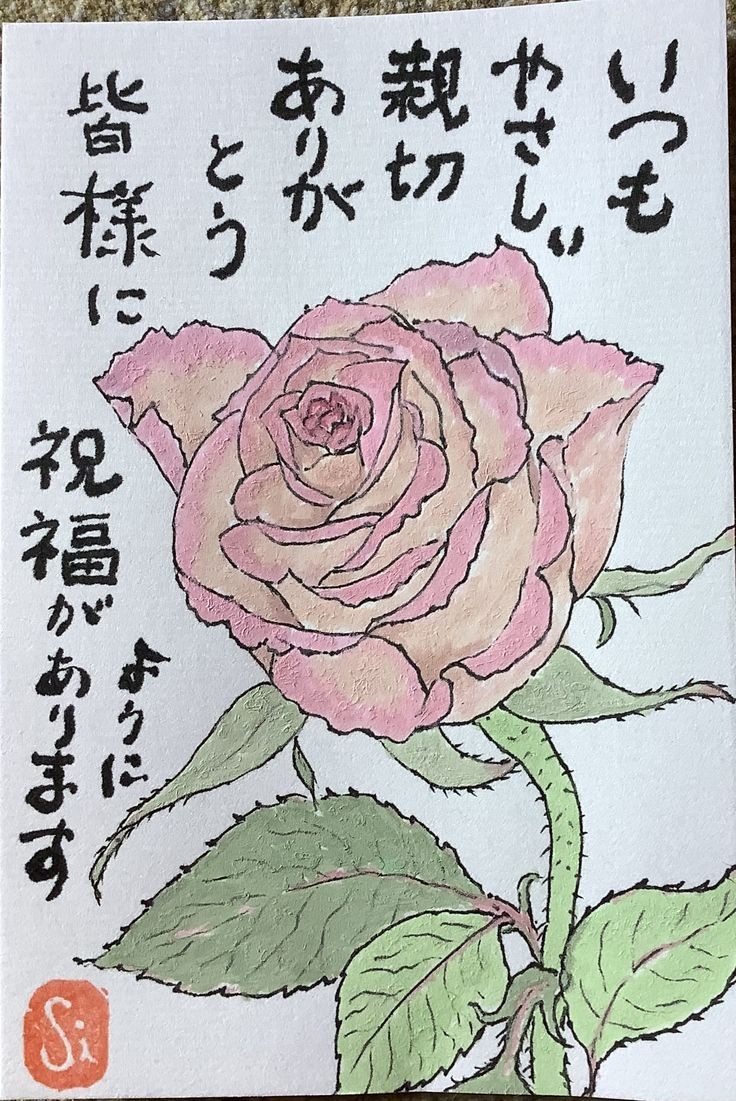 いつも
やさしい
親切
ありが
とう
皆様に
祝福があります
ように
Si